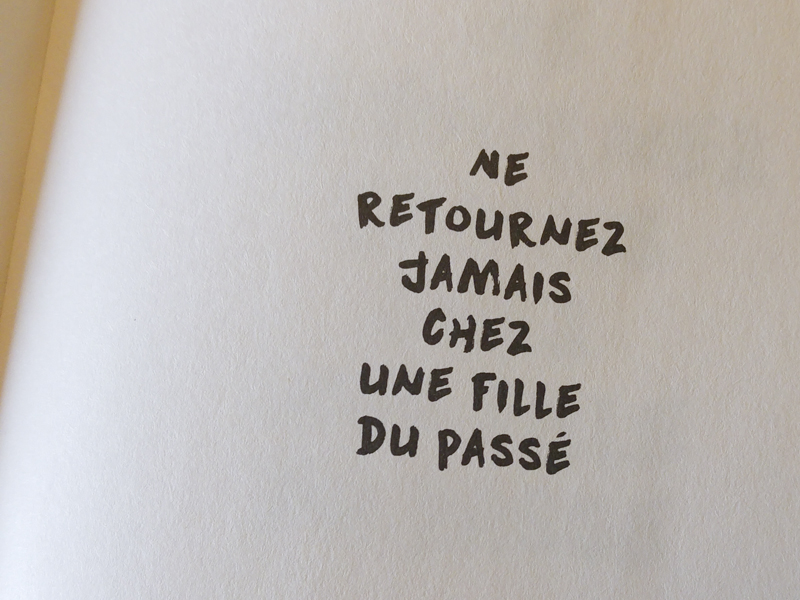 NE
RETOURNEZ
JAMAIS
CHEZ
UNE FILLE
DU PASSÉ